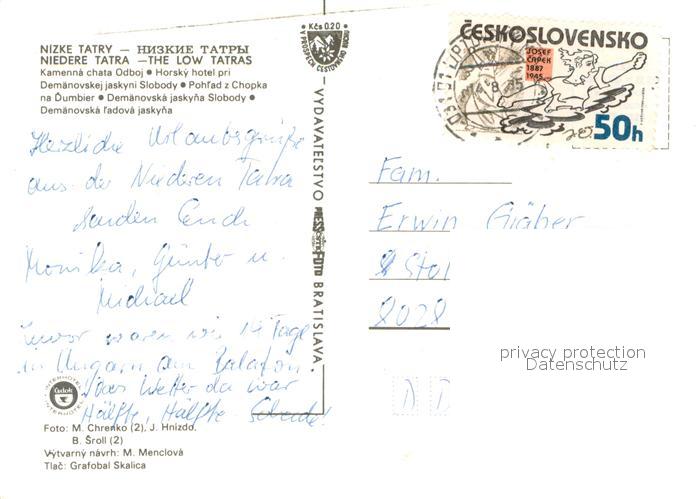 NÍZKE TATRY — НИЗКИЕ ТАТРЫ
NIEDERE TATRA —THE LOW TATRAS
Kamenná chata Odboj • Horský hotel pri
Demänovskej jaskyni Slobody • Pohľad z Chopka
na Ďumbier • Demänovská jaskyňa Slobody •
Demänovská ľadová jaskyňa
Herzliche Urlaubsgrüße
aus der Niederen Tatra
senden Euch
Monika, Günter u.
Michael
Zuvor waren wir 14 Tage
in Ungarn am Balaton
Das Wetter da war
Hälfte, Hälfte
INTERHOTEL
Čedok
INTERHOTEL
Foto: M. Chrenko (2), J. Hnízdo,
B. Šroll (2)
Výtvarný návrh: M. Menclová
Tlač: Grafobal Skalica
Kčs 0.20
V PROSPECH CESTOVNÉHO RUCHU
VYDAVATEĽSTVO PRESSFOTO BRATISLAVA
ČESKOSLOVENSKO
JOSEF
ČAPEK
1887
1945
50h
Fam.
Erwin Gräber
Stol
privacy protection
Datenschutz
D D